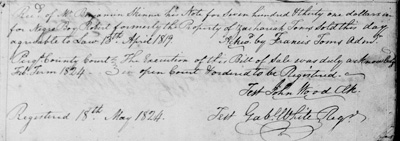 Recd of Mr Benjamin Skinner his Note for seven hundred & thirty one dollars in
for Negro Boy formerly the Property of Zachariah Toms sold this day
agreeable to Law 13th April 1819 Francis Toms Adm
Perqs County Court The Execution of this Bill of Sale was duly
Feb Term 1824 open Court & ordered to be Registered
Test John Wood Clk
Registered 18th May 1824. Test Gabl White Regr